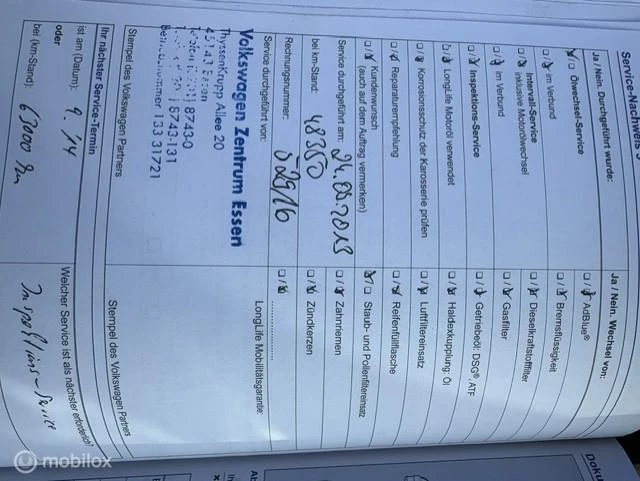 Service-Nachweis
Ja / Nein. Durchgeführt wurde:
Ölwechsel-Service
im Verbund
Intervall-Service
inklusive Motorölwechsel
im Verbund
Inspektions-Service
LongLife Motoröl verwendet
Korrosionsschutz der Karosserie prüfen
Reparaturempfehlung
Kundenwunsch
(auch auf dem Auftrag vermerken)
Service durchgeführt am: 24.09.2013
bei km-Stand: 48350
Rechnungsnummer: 52916
Service durchgeführt von:
Volkswagen Zentrum Essen
ThyssenKrupp Allee 20
Essen
8743-0
8743-131
133 31721
Stempel des Volkswagen Partners
Ihr nächster Service-Termin
ist am (Datum): 9. '14
oder
bei (km-Stand): 63000 km
Ja / Nein. Wechsel von:
AdBlue®
Bremsflüssigkeit
Dieselkraftstofffilter
Gasfilter
Getriebeöl: DSG®, ATF
Haldexkupplung: Öl
Luftfiltereinsatz
Reifenfüllflasche
Staub- und Pollenfiltereinsatz
Zahnriemen
Zündkerzen
LongLife Mobilitätsgarantie:
Stempel des Volkswagen Partners
Welcher Service ist als nächster erforderlich
Inspektions-Service
Doku
mobilox